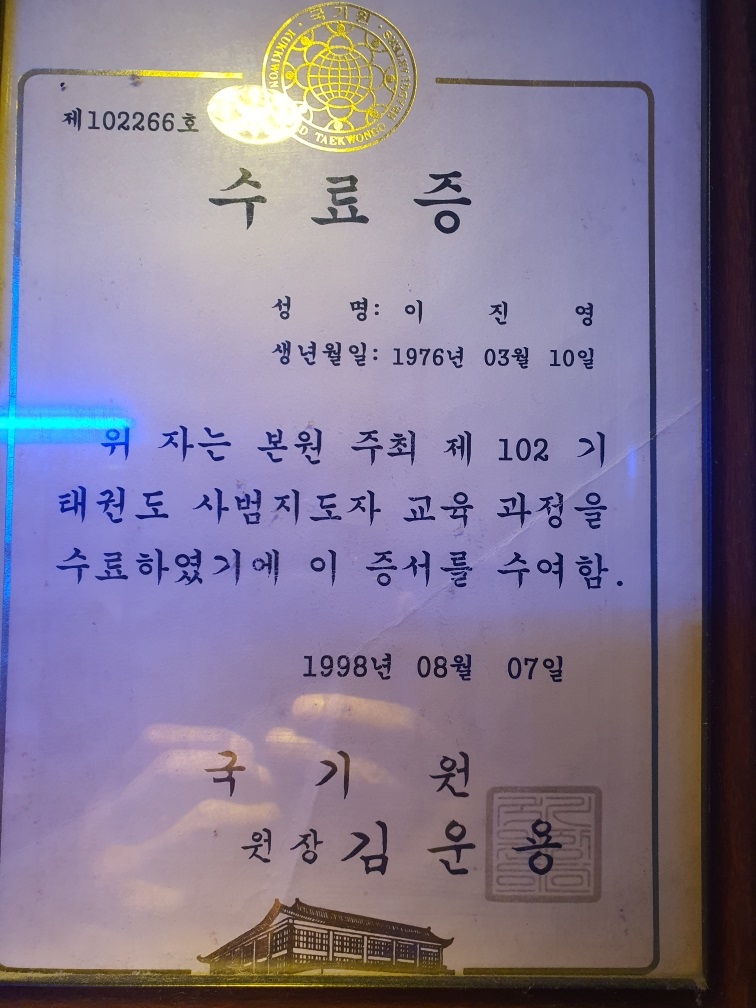 국기원
KUKKIWON
TAEKWONDO
제102266호
수료증
성 명: 이 진 영
생년월일: 1976년 03월 10일
위 자는 본원 주최 제 102 기
태권도 사범지도자 교육 과정을
수료하였기에 이 증서를 수여함.
1998년 08월 07일
국 기 원
원장 김 운 용